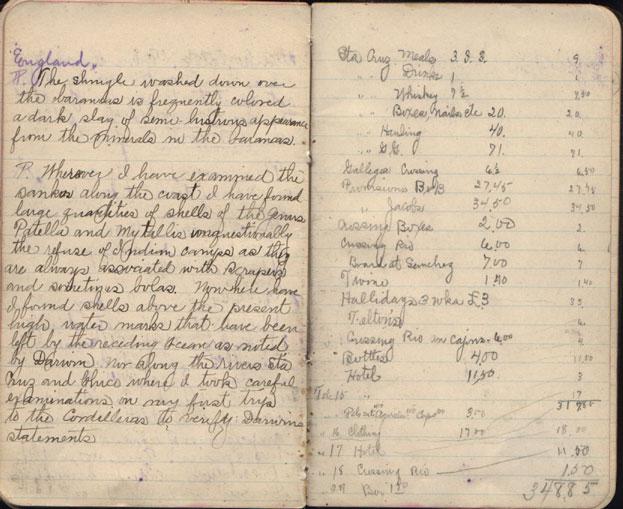 England.
P. The shingle washed down over
the barancas is frequently colored
a dark slay of semi lustrous appearance
from the minerals in the barancas.
P. Wherever I have examined the
banks along the coast I have found
large quantities of shells of the genus
Patella and Mytallis unquestionally
the refuse of Indian camps as they
are always associated with scrapers
and sometimes bolas. Nowhere have
I found shells above the present
high water marks that have been
left by the receding ocean as noted
by Darwin nor along the rivers Sta
Cruz and Chico where I took careful
examinations on my first trips
to the Cordelleras to verify Darwins
statements
Sta Cruz Meals 3.3.3. 9.
" " Drinks 1 1.
" " Whiskey 7½ 7.50
" " Boxes, Nails etc 20. 20.
" " Hauling 40. 40.
" " 71. 71.
Gallegos Crossing 6½ 6.50
Provisions 27.45 27.45
" Jacobs 34.50 34.50
Crossing Boxes 2.00 2.
Crossing Rio 6.00 6.
Board at Sanchez 7.00 7
Twine 1.40 1.40
Hallidays 3 wks £3 35.
Crossing Rio 6.00
Bottles 4.00
Hotel 11.50
Feb 15
3.00
" 16 Clothing 17.00 18.00
" 17 Hotel 11.50
" 18 Crossing Rio 1.50
348.85